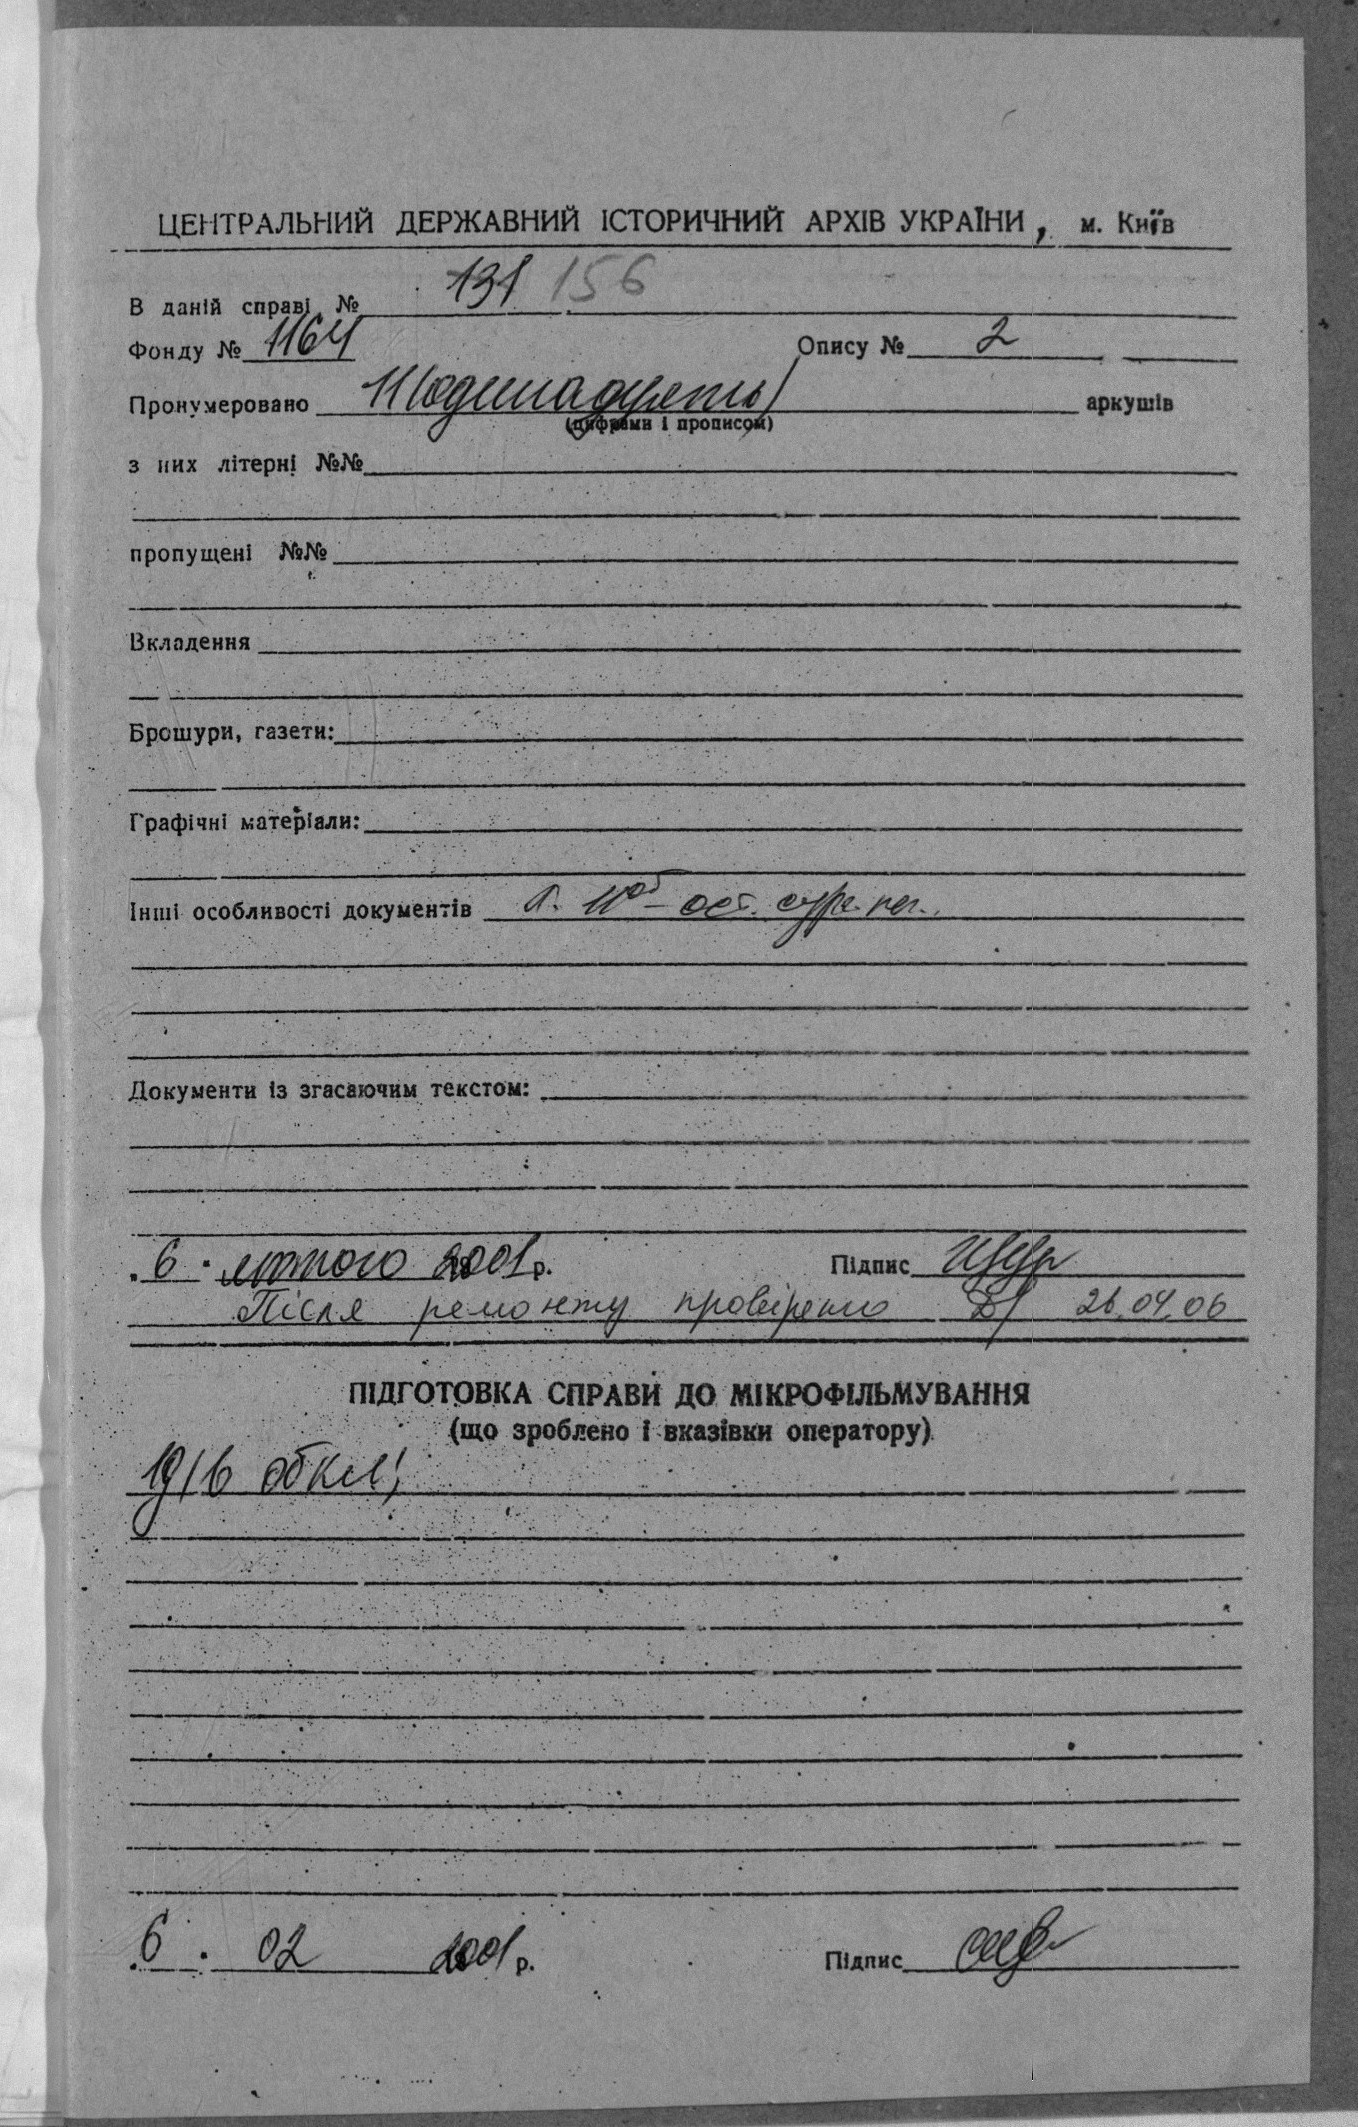 ЦЕНТРАЛЬНИЙ ДЕРЖАВНИЙ ІСТОРИЧНИЙ АРХІВ УКРАЇНИ, м. Київ
В даній справі № 131 156
Фонду № 1164 Опису № 2
Пронумеровано 11 (одинадцять) аркушів
(цифрами і прописом)
з них літерні №№
пропущені №№
Вкладення
Брошури, газети:
Графічні матеріали:
Інші особливості документів а. 11об – ост.
Документи із згасаючим текстом:
"6" лютого 2001 р. Підпис
Після ремонту провірено 26.04.06
ПІДГОТОВКА СПРАВИ ДО МІКРОФІЛЬМУВАННЯ
(що зроблено і вказівки оператору)
обкл;
"6" 02 2001 р. Підпис